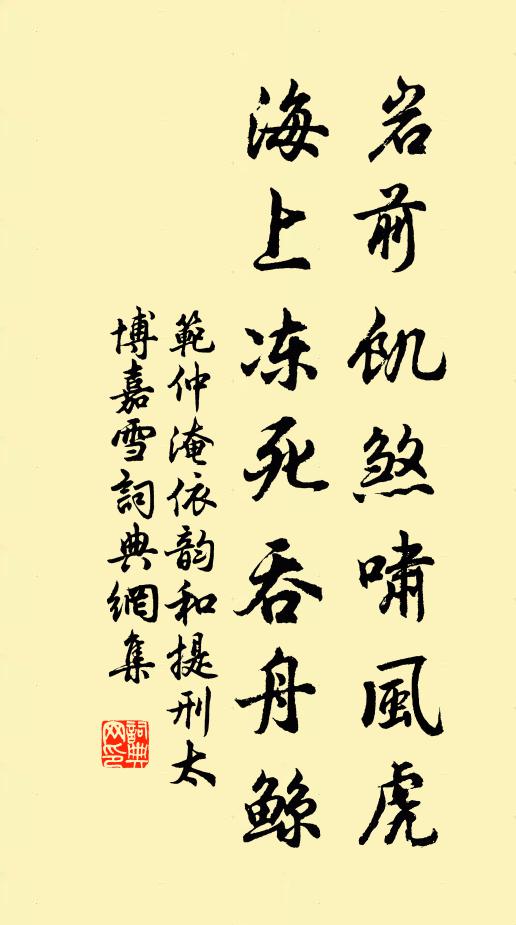 岩前饥煞啸風虎
海上冻死吞舟鲸
範仲淹依韵和提刑太
博嘉雪詞典網集
詞典
网印